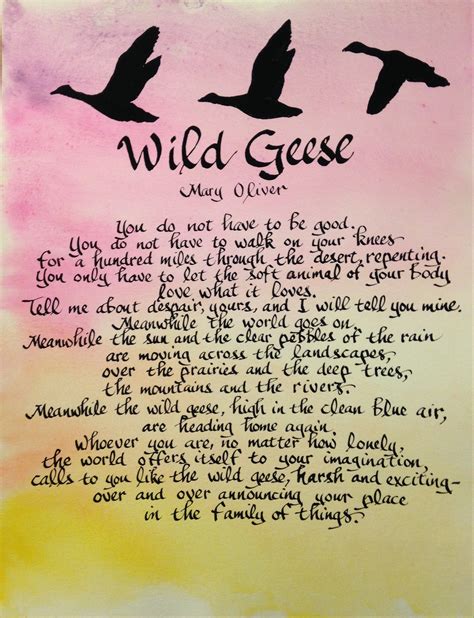 Wild Geese
Mary Oliver
You do not have to be good.
You do not have to walk on your knees
for a hundred miles through the desert, repenting.
You only have to let the soft animal of your body
love what it loves.
Tell me about despair, yours, and I will tell you mine.
Meanwhile the world goes on.
Meanwhile the sun and the clear pebbles of the rain
are moving across the landscapes,
over the prairies and the deep trees,
the mountains and the rivers.
Meanwhile the wild geese, high in the clean blue air,
are heading home again.
Whoever you are, no matter how lonely,
the world offers itself to your imagination,
calls to you like the wild geese, harsh and exciting-
over and over announcing your place
in the family of things.